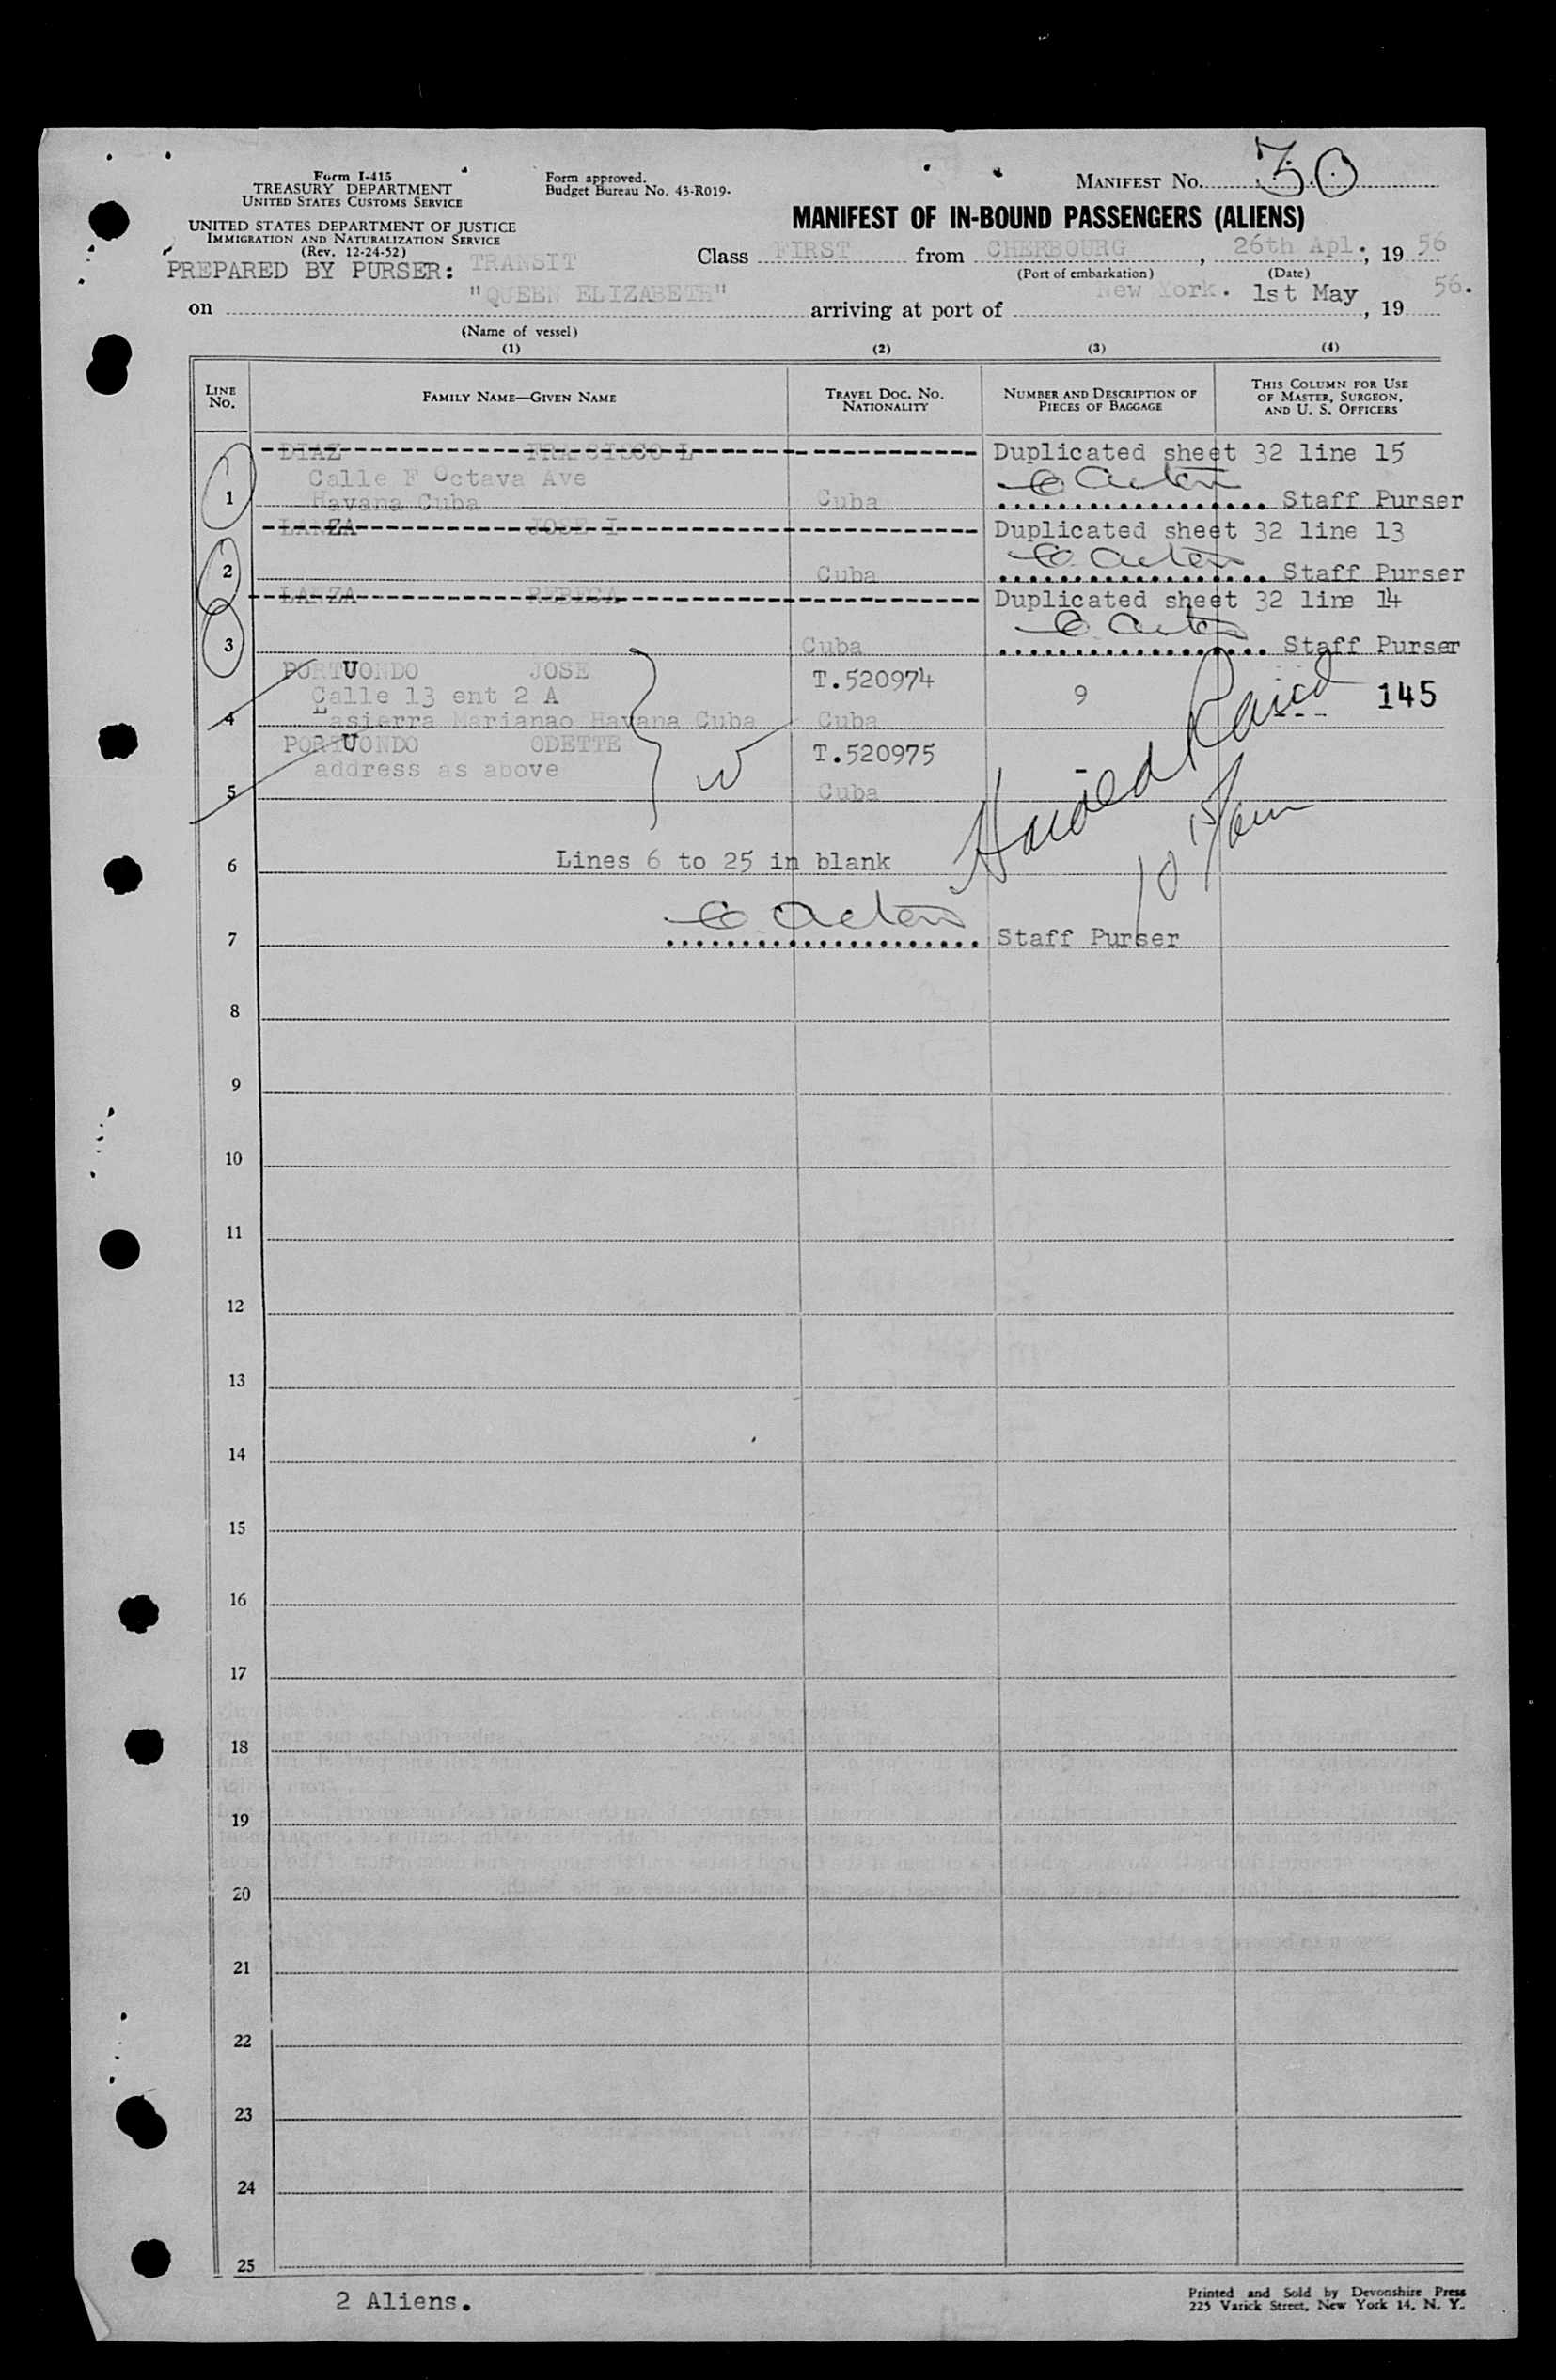 Form I-415
TREASURY DEPARTMENT
UNITED STATES CUSTOMS SERVICE
UNITED STATES DEPARTMENT OF JUSTICE
IMMIGRATION AND NATURALIZATION SERVICE
(Rev. 12-24-52)
Form approved.
Budget Bureau No. 43-R019-
MANIFEST No. 30
MANIFEST OF IN-BOUND PASSENGERS (ALIENS)
PREPARED BY PURSER: TRANSIT
Class FIRST from CHERBOURG, 26th Apl., 19 56
(Port of embarkation) (Date)
on "QUEEN ELIZABETH" arriving at port of New York. 1st May, 19 56.
(Name of vessel)
(1) (2) (3) (4)
LINE No. FAMILY NAME—GIVEN NAME TRAVEL DOC. NO. NATIONALITY NUMBER AND DESCRIPTION OF PIECES OF BAGGAGE THIS COLUMN FOR USE OF MASTER, SURGEON, AND U. S. OFFICERS
DIAZ FRANCISCO L Duplicated sheet 32 line 15
Calle F Octava Ave
1 Havana Cuba Cuba Staff Purser
LANZA JOSE I Duplicated sheet 32 line 13
2 Cuba Staff Purser
LANZA REBECA Duplicated sheet 32 line 14
3 Cuba Staff Purser
PORTUONDO JOSE T.520974 9 145
Calle 13 ent 2 A
4 Lasierra Marianao Havana Cuba Cuba
PORTUONDO ODETTE T.520975
address as above
5 Cuba
6 Lines 6 to 25 in blank
7 Staff Purser
8
9
10
11
12
13
14
15
16
17
18
19
20
21
22
23
24
25
2 Aliens.
Printed and Sold by Devonshire Press
225 Varick Street, New York 14, N. Y.